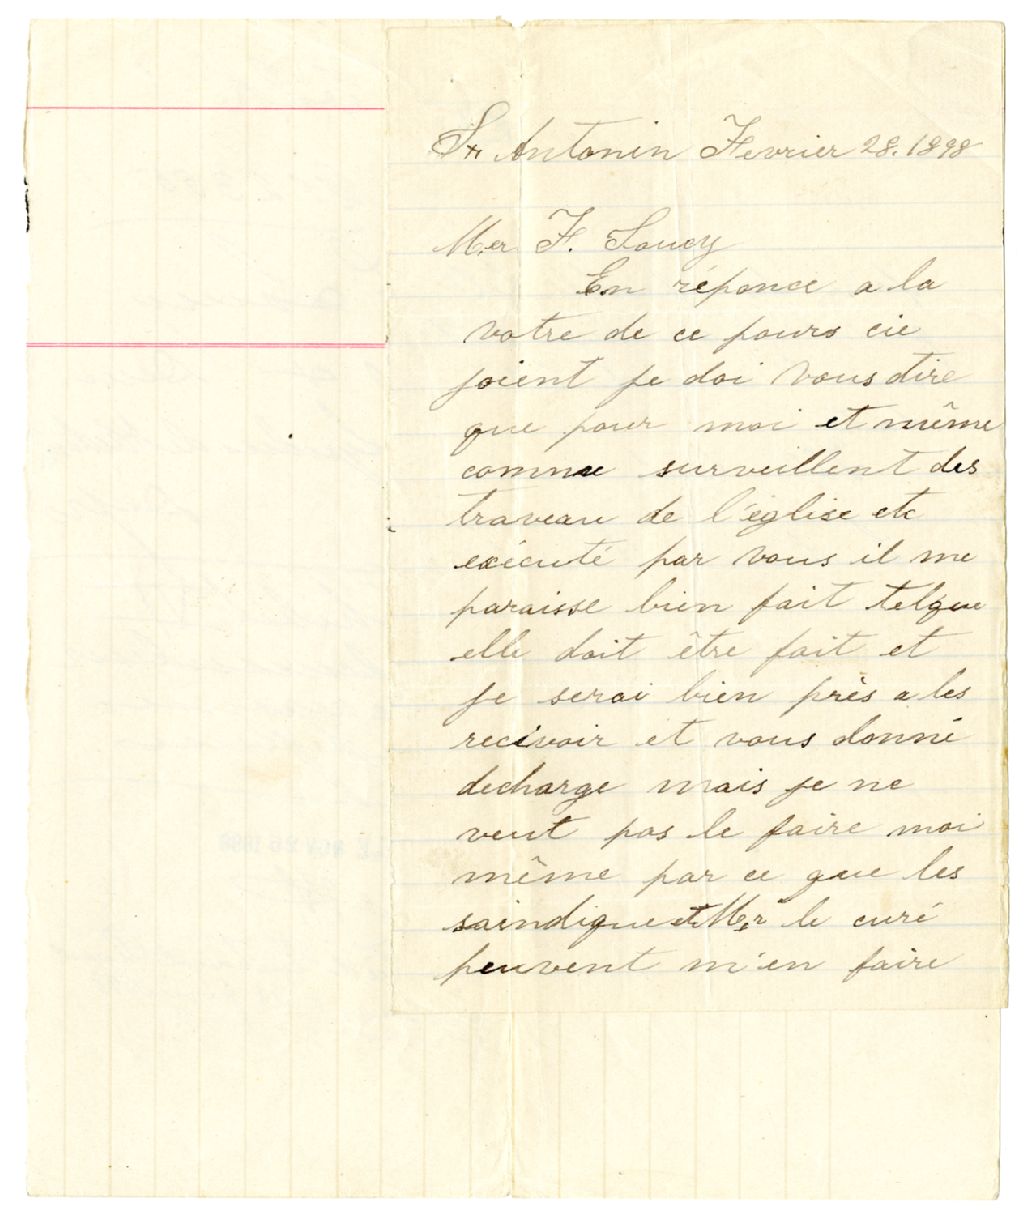 St Antonin Fevrier 28. 1898
Mer F. Soucy
En réponce a la
votre de ce jours cie
joient je doi vous dire
que pour moi et même
comme surveillent des
traveau de l'église etc
exécuté par vous il me
paraisse bien fait telque
elle doit être fait et
je serai bien près a les
recivoir et vous donné
decharge mais je ne
veut pas le faire moi
même par ce que les
saindique et Mr le curé
peuvent m'en faire